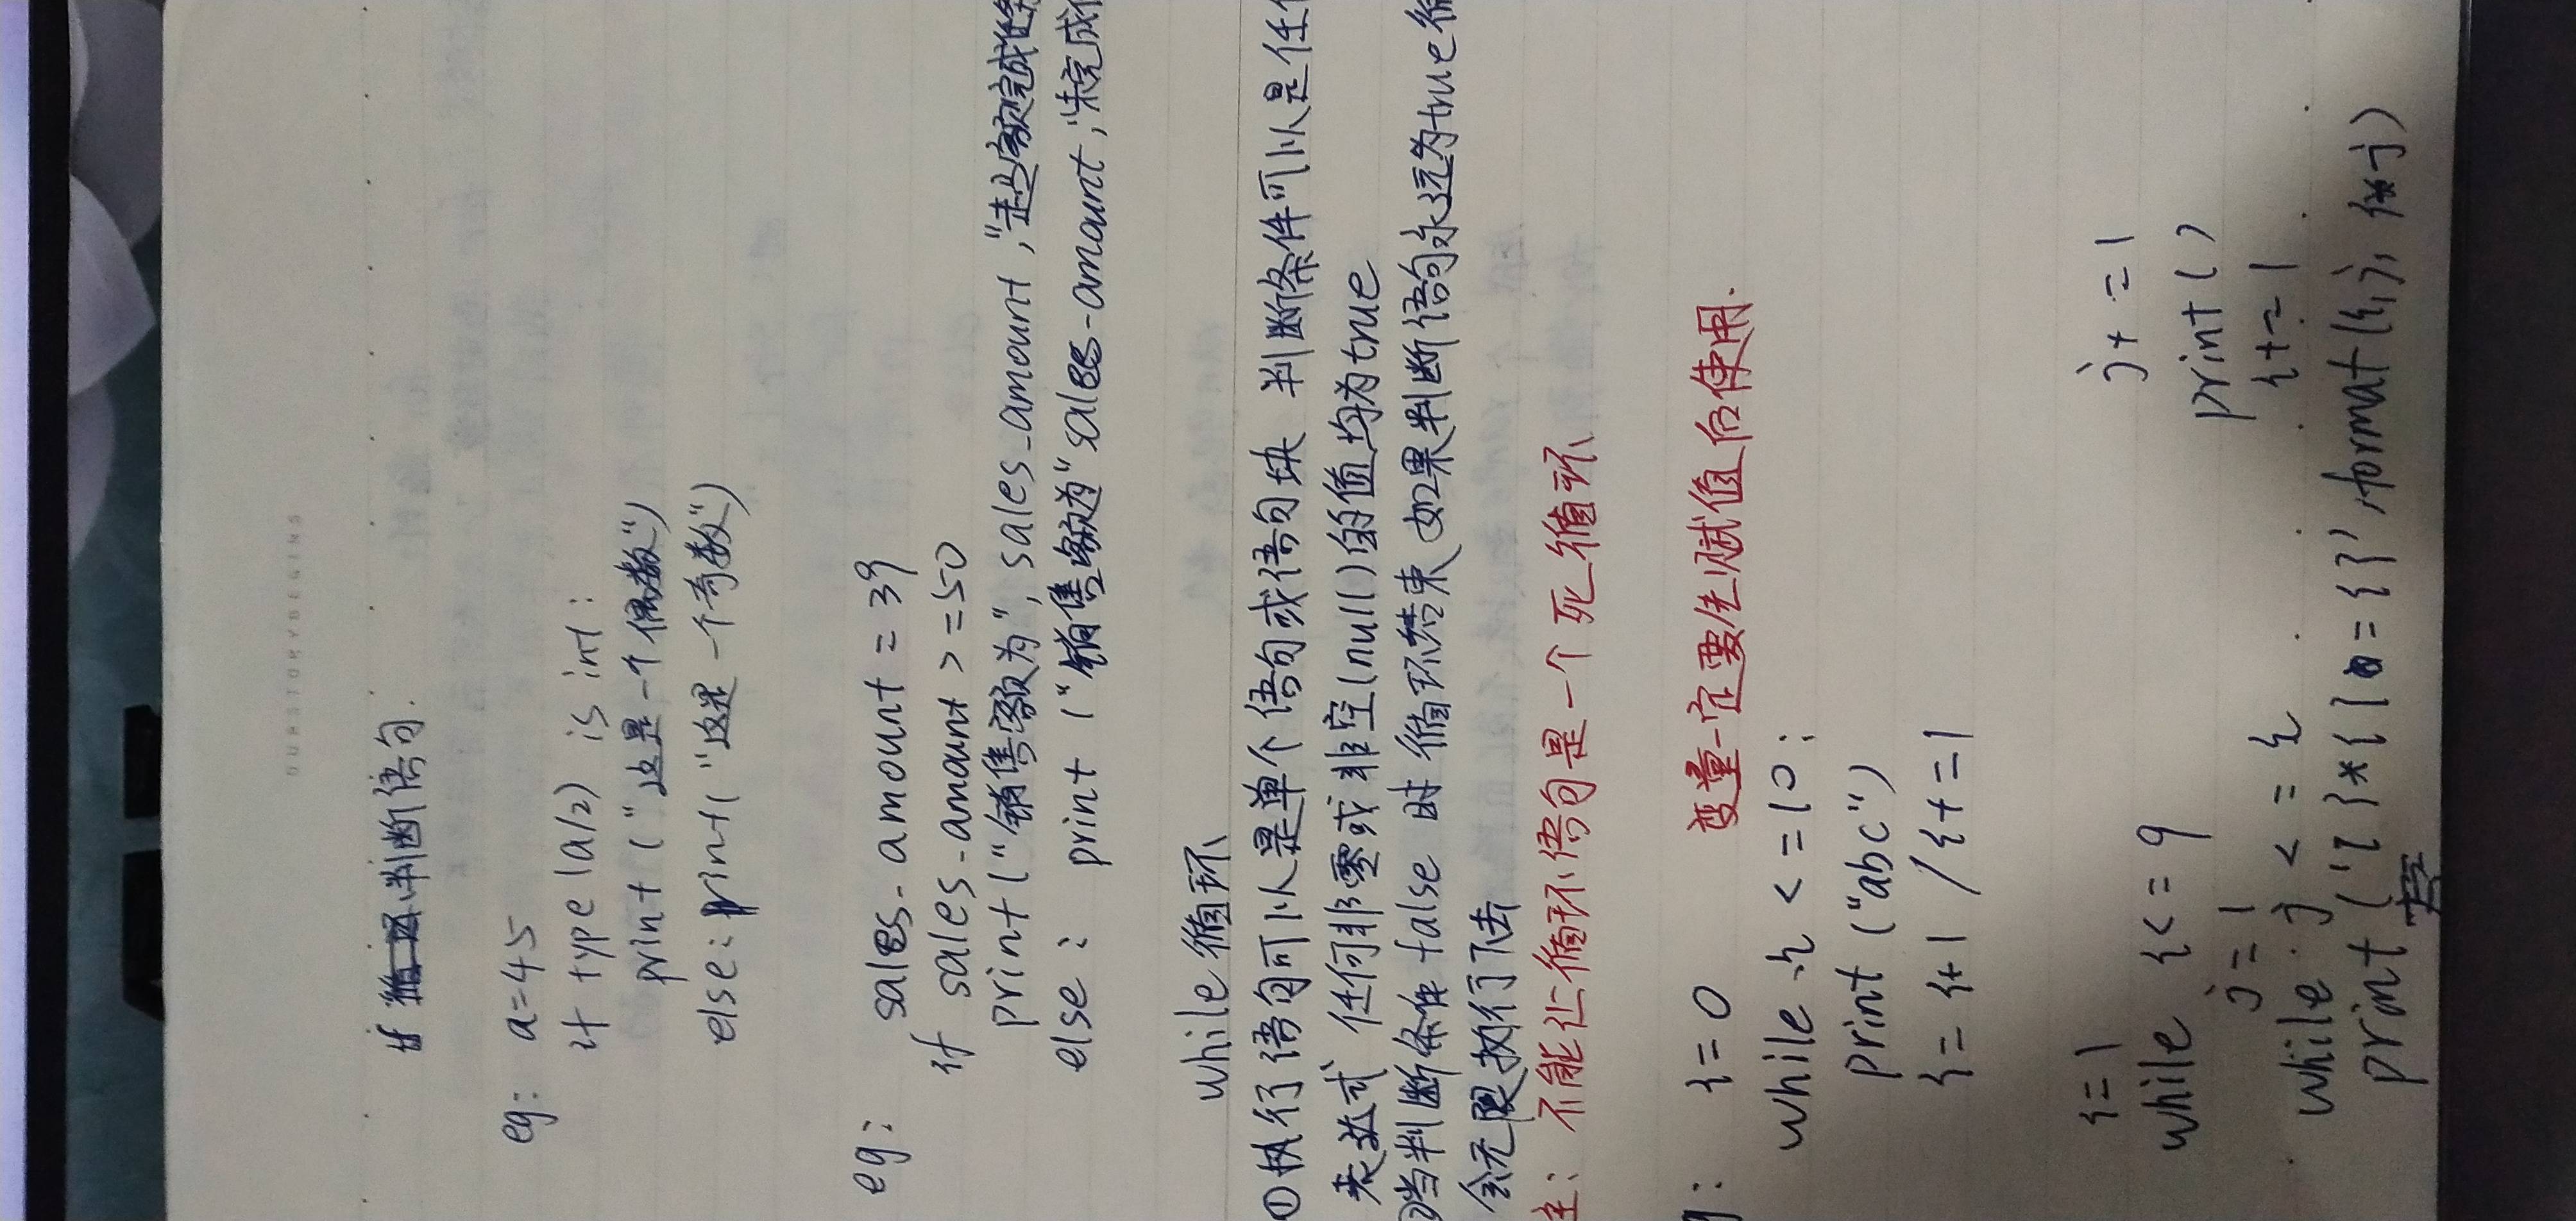 if 判断语句.
eg: a=45
if type(a/2) is int:
print("这是一个偶数")
else: print("这是一个奇数")
eg: sales-amount=39
if sales-amount>=50
print("销售额为", sales_amount,"销售额完成任
else: print("销售额为"sales-amount,"未完成
while循环
①执行语句可以是单个语句或语句块 判断条件可以是任
表达式 任何非零或非空(null)的值均为true
②当判断条件false时循环结束 如果判断语句永远为true循
会无限执行下去
注: 不能让循环语句是一个死循环
变量一定要先赋值后使用.
i=0
while i<=10:
print("abc")
i=i+1 /i+=1
i=1
while i<=9
j=1
while j<=i
print('{}*{}={}'.format(i,j,i*j)
j+=1
print()
i+=1